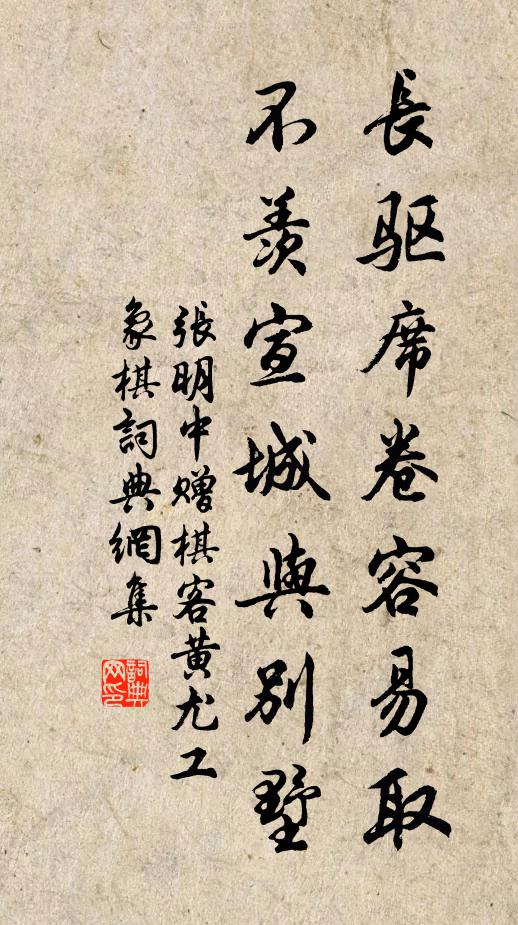 長驱席卷容易取
不羡宣城與别墅
張明中赠棋客黄尤工
象棋詞典網集
詞典网印